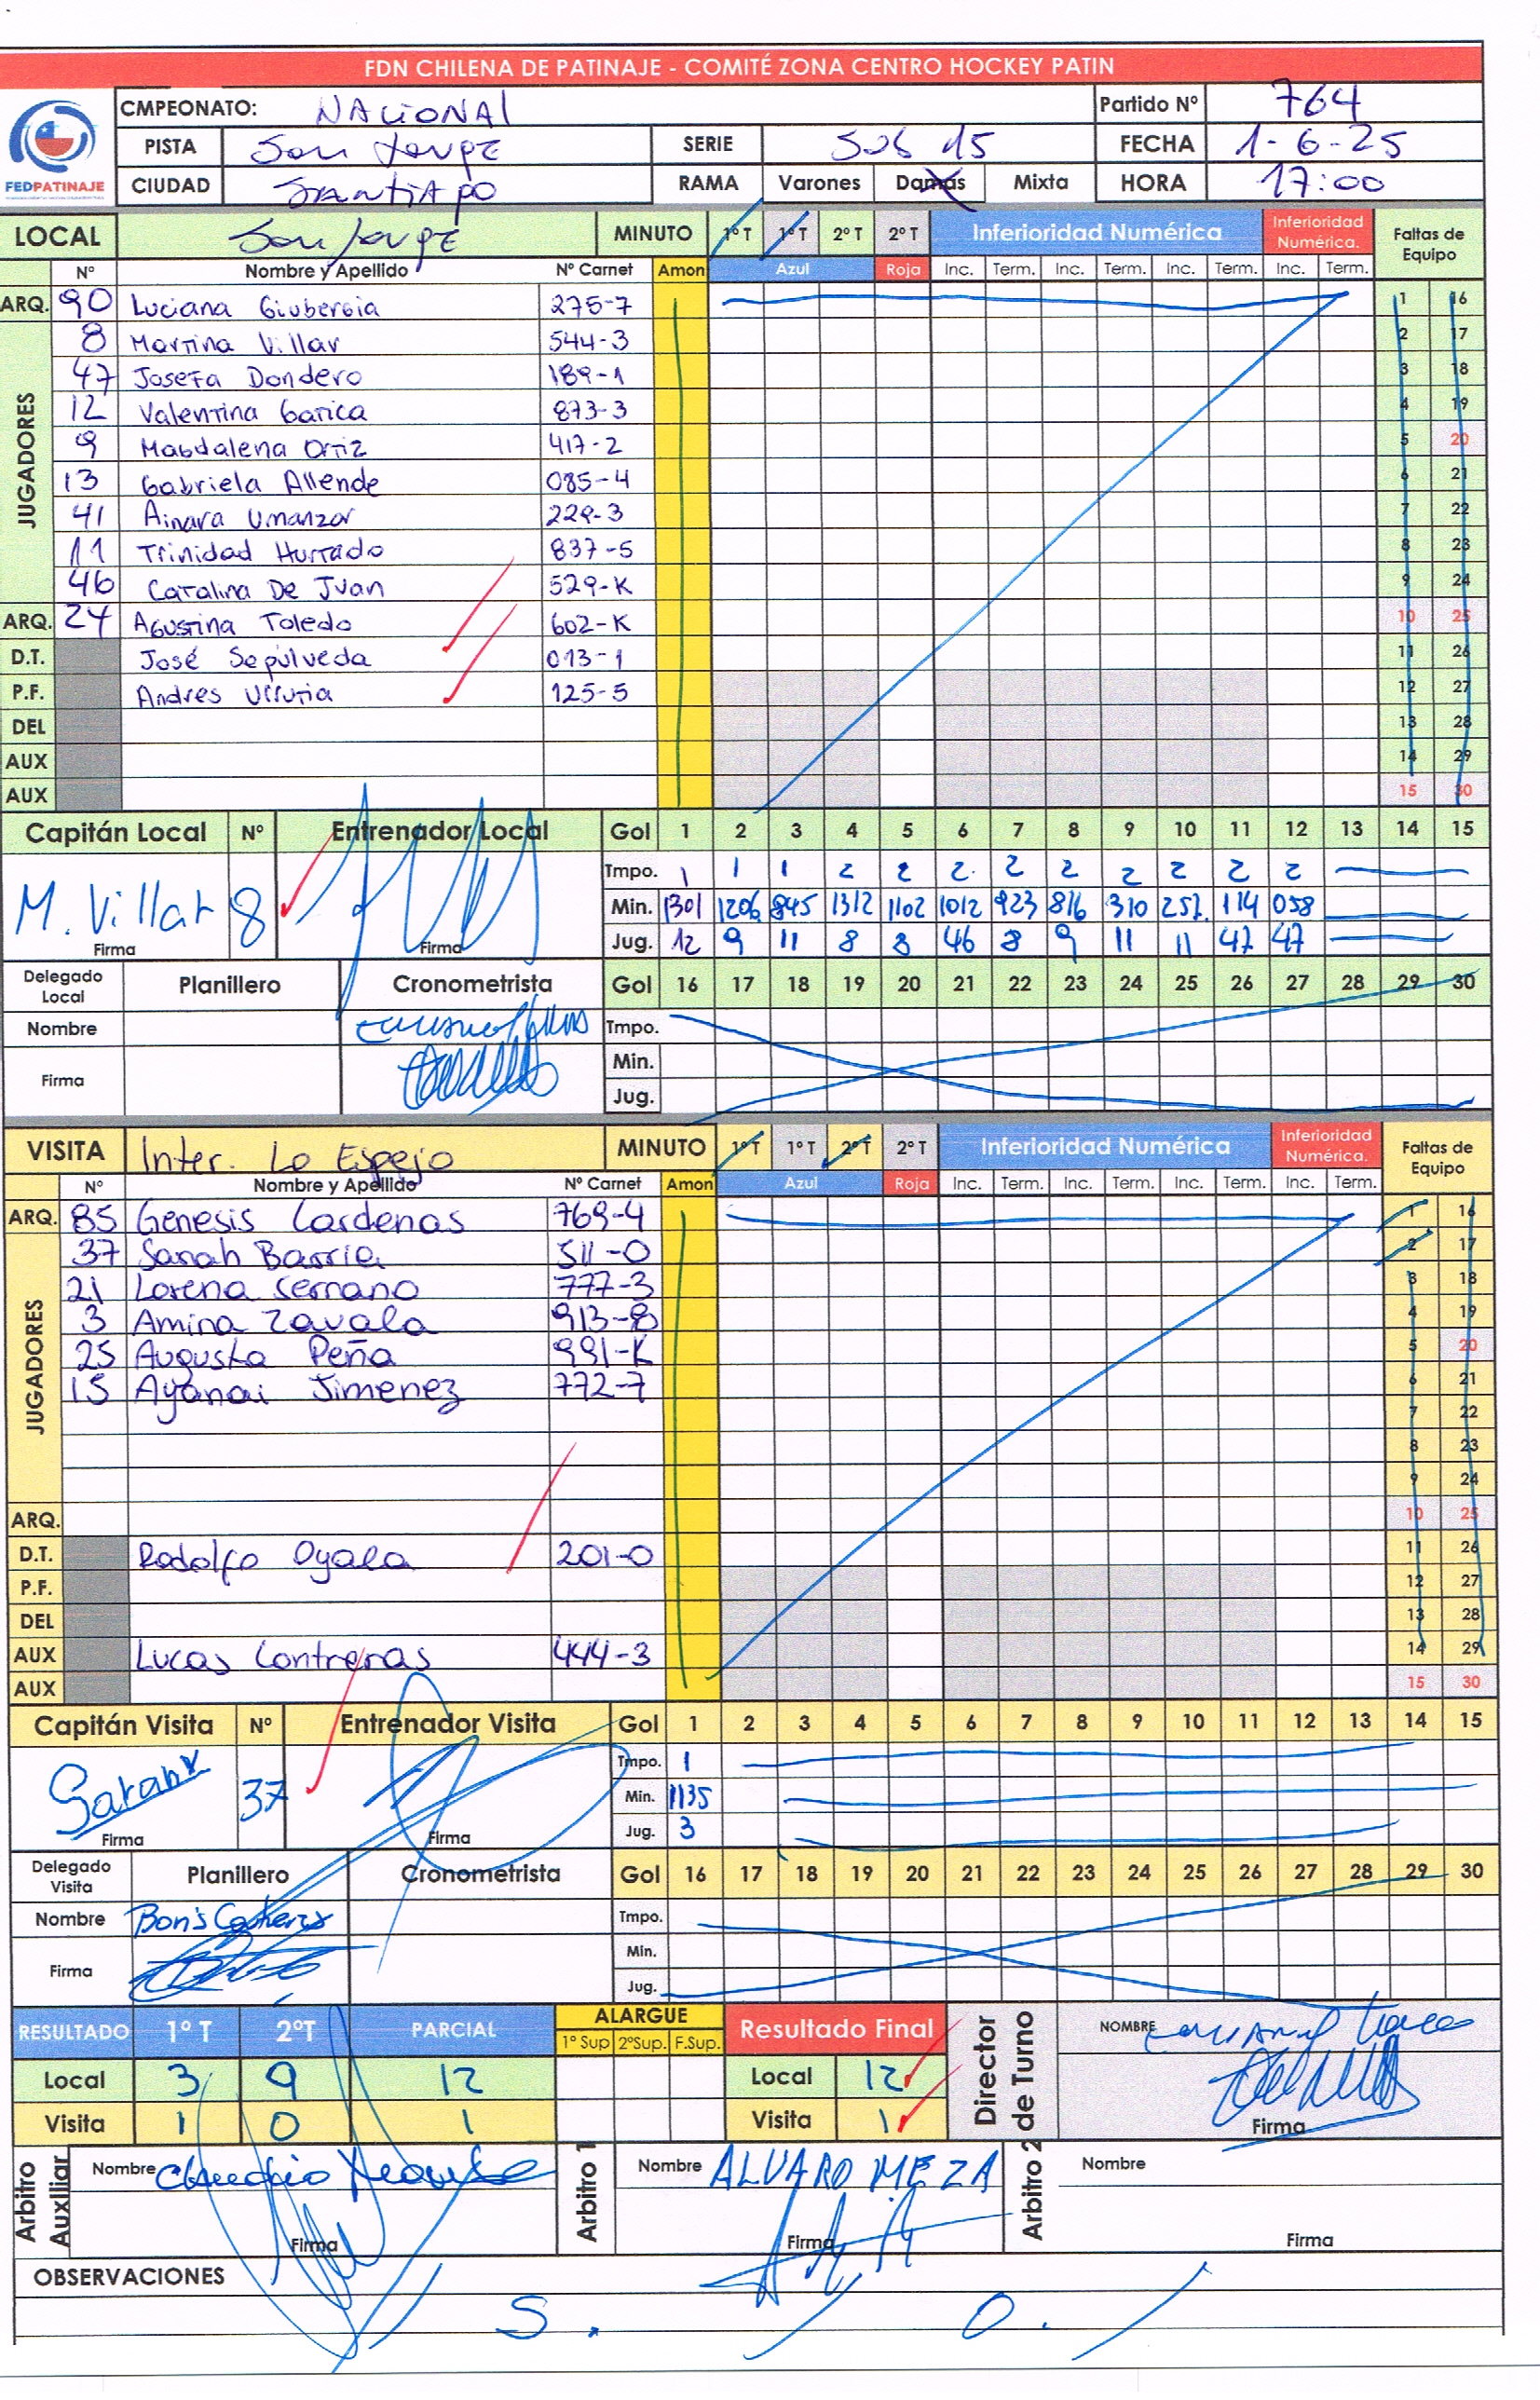 FDN CHILENA DE PATINAJE - COMITÉ ZONA CENTRO HOCKEY PATIN
FEDPATINAJE
CMPEONATO: NACIONAL Partido Nº 764
PISTA San Jorge SERIE SUB 15 FECHA 1-6-25
CIUDAD Santiago RAMA Varones Damas Mixta HORA 17:00
LOCAL San Jorge MINUTO 1º T 1º T 2º T 2º T Inferioridad Numérica Inferioridad Numérica. Faltas de Equipo
Nº Nombre y Apellido Nº Carnet Amon Azul Roja Inc. Term. Inc. Term. Inc. Term. Inc. Term.
JUGADORES
ARQ. 90 Luciana Giubergia 275-7 1 16
8 Martina Villar 544-3 2 17
47 Josefa Dondero 189-1 3 18
12 Valentina Garica 873-3 4 19
9 Magdalena Ortiz 417-2 5 20
13 Gabriela Allende 085-4 6 21
41 Ainara Umanzor 229-3 7 22
11 Trinidad Hurtado 837-5 8 23
46 Catalina De Juan 529-K 9 24
ARQ. 24 Agustina Toledo 602-K 10 25
D.T. José Sepúlveda 013-1 11 26
P.F. Andres Urrutia 125-5 12 27
DEL 13 28
AUX 14 29
AUX 15 30
Capitán Local Nº Entrenador Local Gol 1 2 3 4 5 6 7 8 9 10 11 12 13 14 15
Tmpo. 1 1 1 2 2 2 2 2 2 2 2 2
M. Villar 8 Min. 1301 1206 845 1312 1102 1012 923 816 310 257 114 058
Firma Firma Jug. 12 9 11 8 8 46 8 9 11 11 47 47
Delegado Local Planillero Cronometrista Gol 16 17 18 19 20 21 22 23 24 25 26 27 28 29 30
Nombre Tmpo.
Min.
Firma Jug.
VISITA Inter. Lo Espejo MINUTO 1º T 1º T 2º T 2º T Inferioridad Numérica Inferioridad Numérica. Faltas de Equipo
Nº Nombre y Apellido Nº Carnet Amon Azul Roja Inc. Term. Inc. Term. Inc. Term. Inc. Term.
JUGADORES
ARQ. 85 Genesis Cardenas 769-4 1 16
37 Sarah Barria 511-0 2 17
21 Lorena Serrano 777-3 3 18
3 Amina Zavala 913-8 4 19
25 Augusta Peña 991-K 5 20
15 Ayanai Jimenez 772-7 6 21
7 22
8 23
9 24
ARQ. 10 25
D.T. Rodolfo Oyala 201-0 11 26
P.F. 12 27
DEL 13 28
AUX Lucas Contreras 444-3 14 29
AUX 15 30
Capitán Visita Nº Entrenador Visita Gol 1 2 3 4 5 6 7 8 9 10 11 12 13 14 15
Tmpo. 1
Sarah 37 Min. 1135
Firma Firma Jug. 3
Delegado Visita Planillero Cronometrista Gol 16 17 18 19 20 21 22 23 24 25 26 27 28 29 30
Nombre Boris Tmpo.
Min.
Firma Jug.
RESULTADO 1º T 2ºT PARCIAL ALARGUE 1º Sup 2ºSup. F.Sup. Resultado Final Director de Turno NOMBRE
Local 3 9 12 Local 12
Visita 1 0 1 Visita 1 Firma
Arbitro Auxiliar Nombre Claudio Arbitro 1 Nombre ALVARO MEZA Arbitro 2 Nombre
Firma Firma Firma
OBSERVACIONES
S. O.